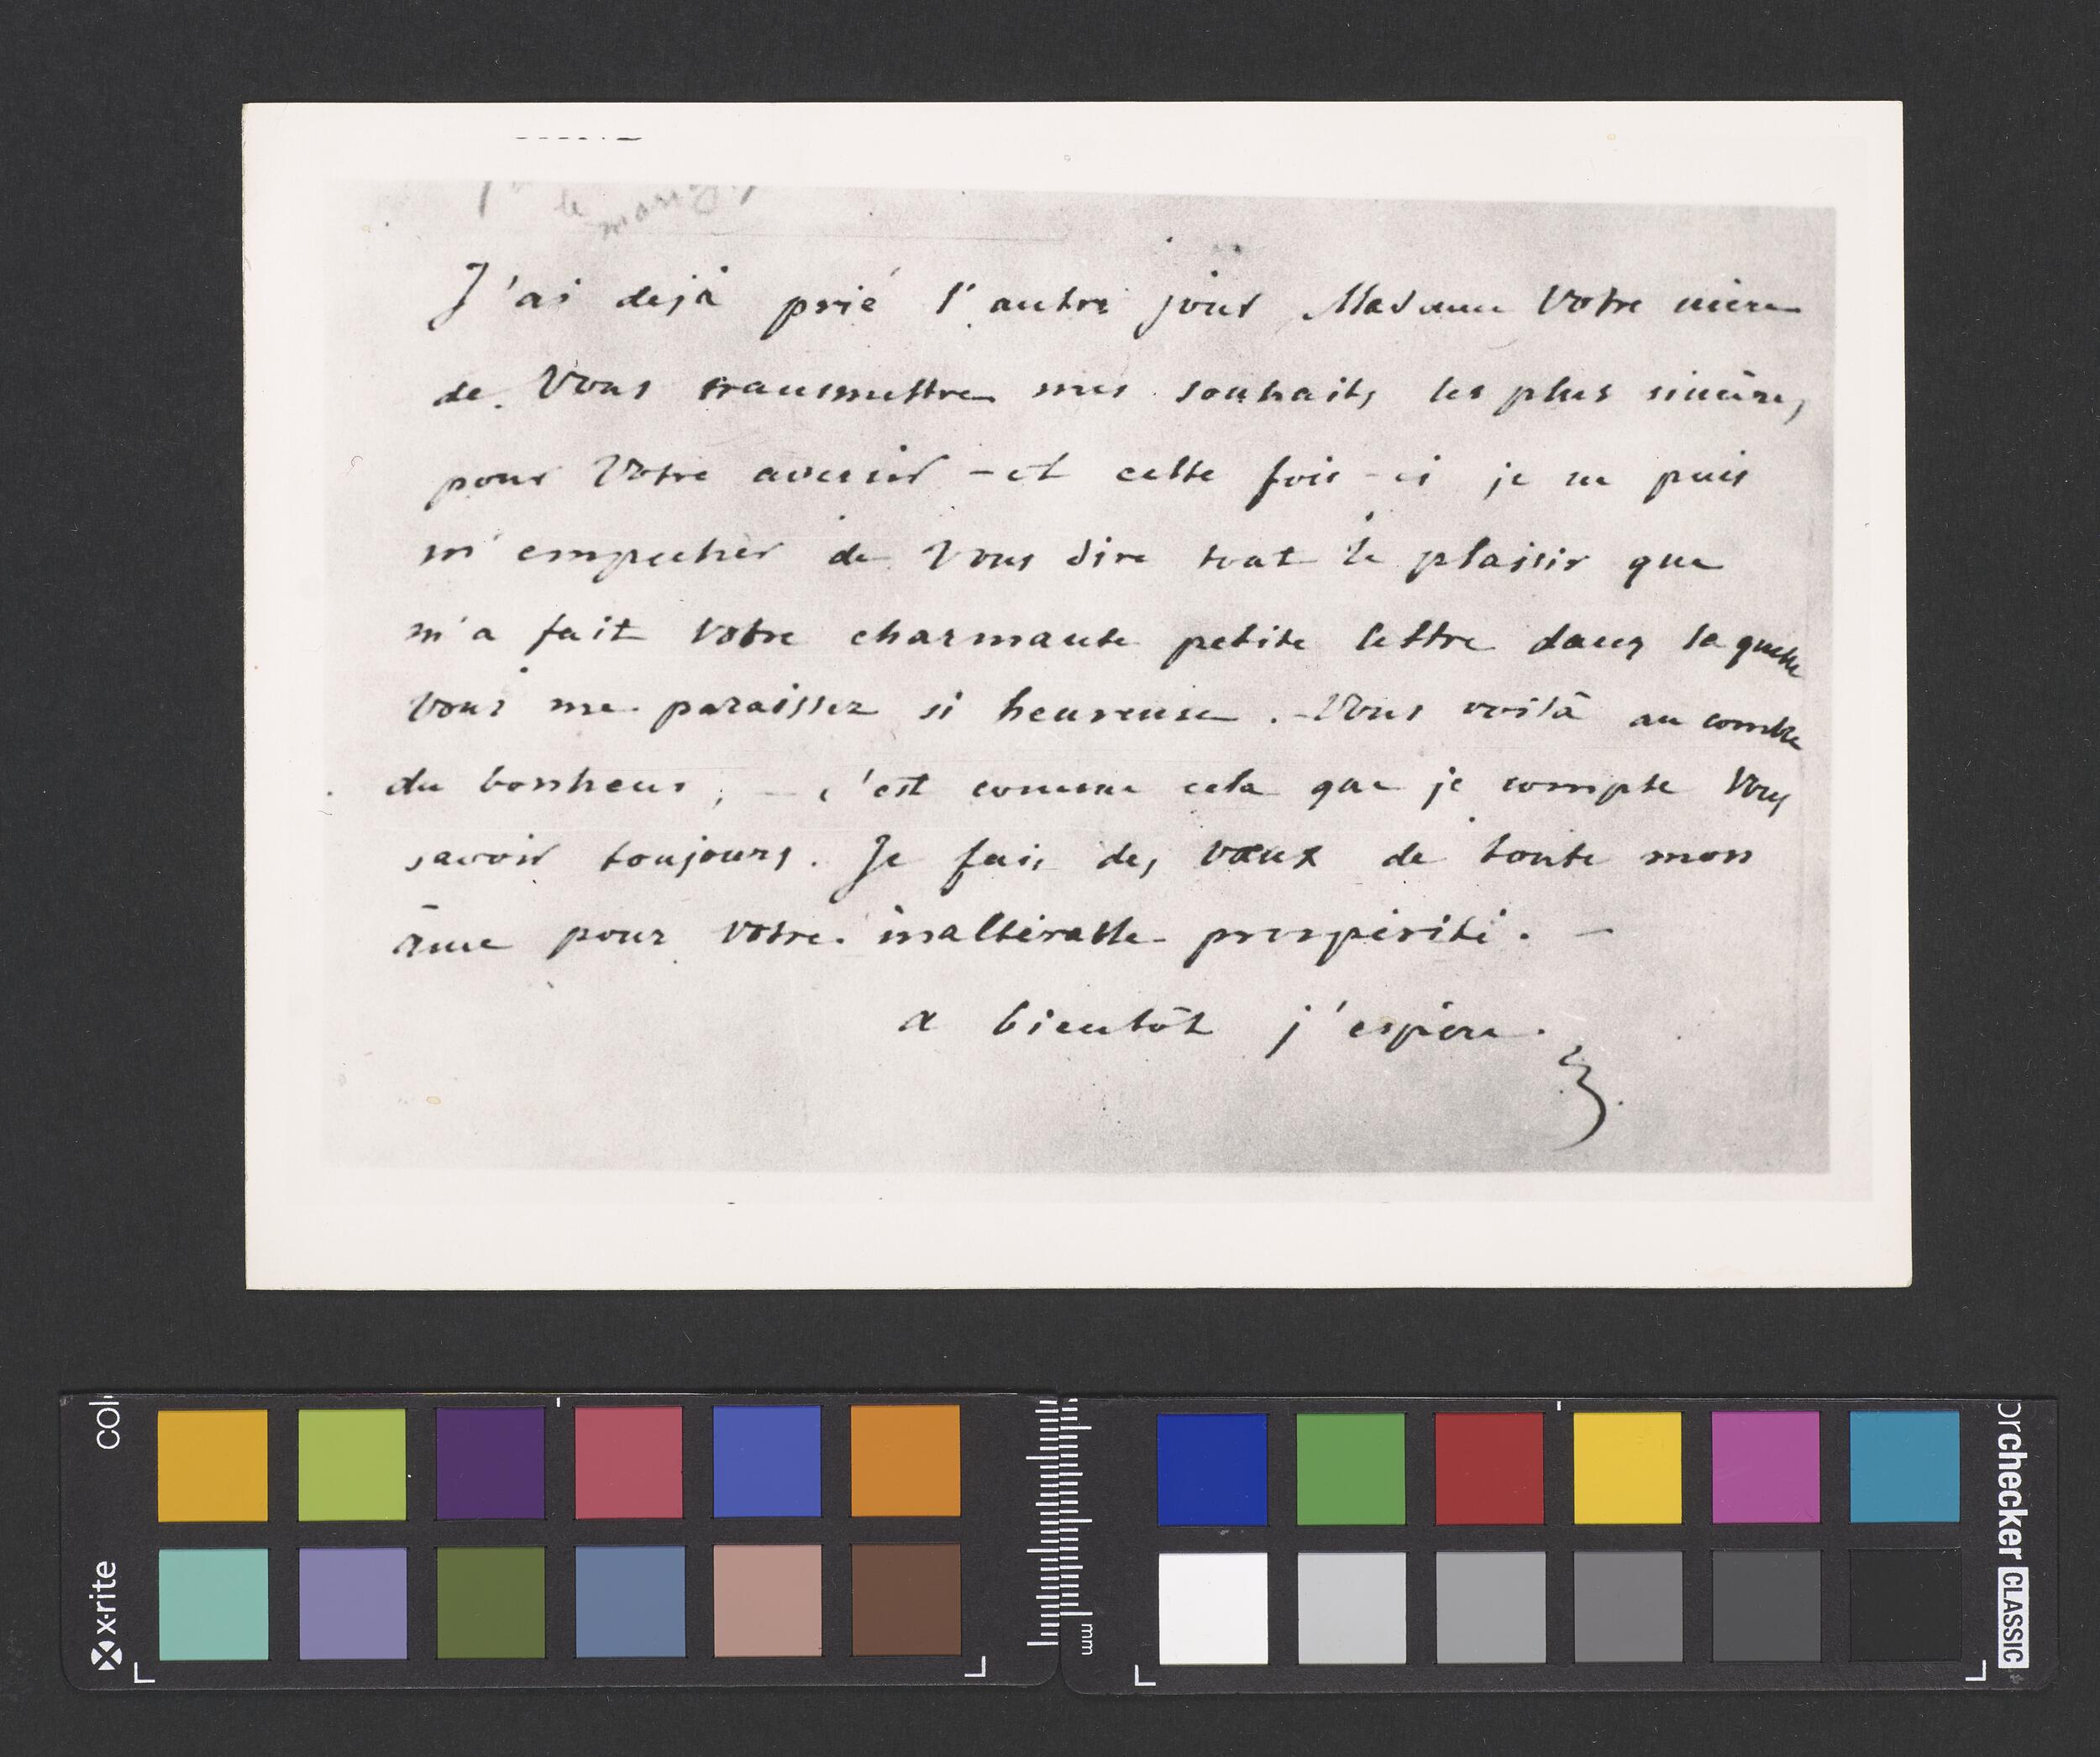 le
J'ai dejà prié l'autre jour Madame Votre mère
de Vous transmettre mes souhaits les plus sincères
pour Votre avenir - et cette fois-ci je ne puis
m'empecher de Vous dire tout le plaisir que
m'a fait Votre charmante petite lettre dans laquelle
Vous me paraissez si heureuse. - Vous voilà au comble
du bonheur; - c'est comme cela que je compte Vous
savoir toujours. Je fais des vœux de toute mon
âme pour votre inaltérable prospérité. -
a bientôt j'espère.
x-rite
colorchecker CLASSIC
mm